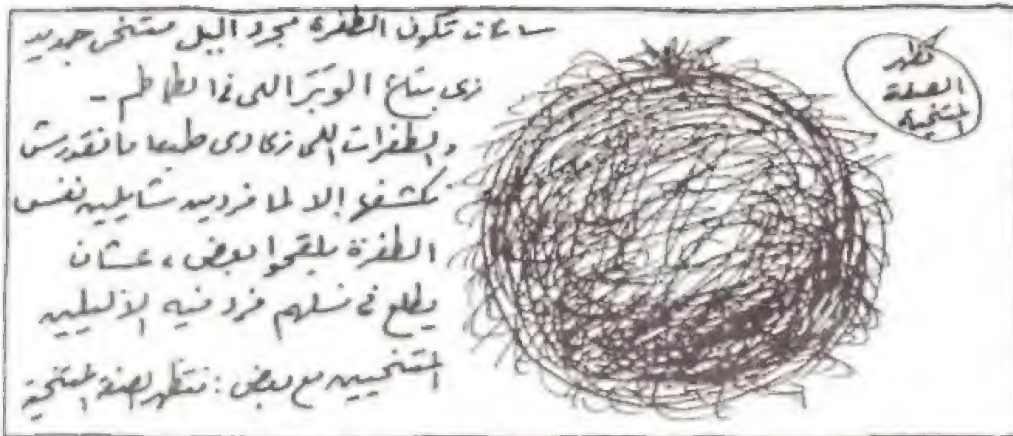 ساعات تكون الطفرة مجرد أليل متنحى جديد
زى بتاع الوَبَر اللى فى الطماطم -
والطفرات اللى زى دى طبعا ما نقدرش
نكشفها إلا لما فردين شايلين نفس
الطفرة يلقحوا بعض ، عشان
يطلع فى نسلهم فرد فيه الأليلين
المتنحيين مع بعض : فتظهر الصفة المتنحية
تظهر
الصفة
المتنحية